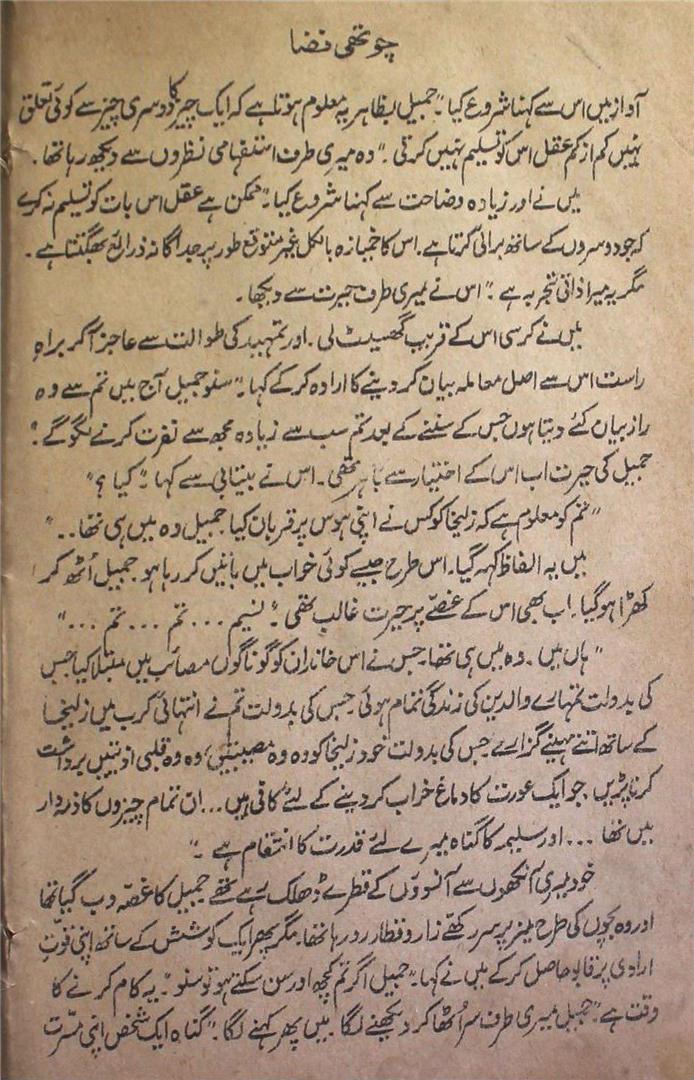 چوتھی فضا
آواز میں اس سے کہنا شروع کیا۔ "جمیل بظاہر یہ معلوم ہوتا ہے کہ ایک چیز کا دوسری چیز سے کوئی تعلق
نہیں کم از کم عقل اس کو تسلیم نہیں کرتی۔" وہ میری طرف استفہامی نظروں سے دیکھ رہا تھا۔
میں نے اور زیادہ وضاحت سے کہنا شروع کیا۔ "ممکن ہے عقل اس بات کو تسلیم نہ کرے
کہ جو دوسروں کے ساتھ برائی کرتا ہے۔ اس کا خمیازہ بالکل غیر متوقع طور پر جداگانہ ذرائع بھگتتا ہے۔
مگر یہ میرا ذاتی تجربہ ہے۔" اس نے میری طرف حیرت سے دیکھا۔
میں نے کرسی اس کے قریب گھسیٹ لی۔ اور تمہید کی طوالت سے عاجز آ کر براہِ
راست اس سے اصل معاملہ بیان کر دینے کا ارادہ کر کے کہا۔ "سنو جمیل آج میں تم سے وہ
راز بیان کئے دیتا ہوں جس کے سننے کے بعد تم سب سے زیادہ مجھ سے نفرت کرنے لگو گے۔"
جمیل کی حیرت اب اس کے اختیار سے باہر تھی۔ اس نے بیتابی سے کہا۔ "کیا؟"
"تم کو معلوم ہے کہ زلیخا کو کس نے اپنی ہوس پر قربان کیا جمیل وہ میں ہی تھا۔۔"
میں یہ الفاظ کہہ گیا۔ اس طرح جیسے کوئی خواب میں باتیں کر رہا ہو جمیل اُٹھ کر
کھڑا ہو گیا۔ اب بھی اس کے غصے پر حیرت غالب تھی۔ "نسیم ... تم ... تم ..."
"ہاں میں۔ وہ میں ہی تھا۔ جس نے اس خاندان کو گوناگوں مصائب میں مبتلا کیا جس
کی بدولت تمہارے والدین کی زندگی تمام ہوئی جس کی بدولت تم نے انتہائی کرب میں زلیخا
کے ساتھ اتنے مہینے گزارے جس کی بدولت خود زلیخا کو وہ وہ مصیبتیں، وہ وہ قلبی اذیتیں برداشت
کرنا پڑیں جو ایک عورت کا دماغ خراب کر دینے کے لئے کافی ہیں... ان تمام چیزوں کا ذمہ دار
میں تھا ... اور سلیمہ کا گناہ میرے لئے قدرت کا انتقام ہے۔"
خود میری آنکھوں سے آنسوؤں کے قطرے ڈھلک رہے تھے جمیل کا غصہ دب گیا تھا
اور وہ بچوں کی طرح میز پر سر رکھے زار و قطار رو رہا تھا۔ مگر پھر ایک کوشش کے ساتھ اپنی قوتِ
ارادی پر قابو حاصل کر کے میں نے کہا۔ "جمیل اگر تم کچھ اور سن سکتے ہو تو سنو۔ یہ کام کرنے کا
وقت ہے" جمیل میری طرف سر اُٹھا کر دیکھنے لگا۔ میں پھر کہنے لگا۔ "گناہ ایک شخص اپنی مسرت